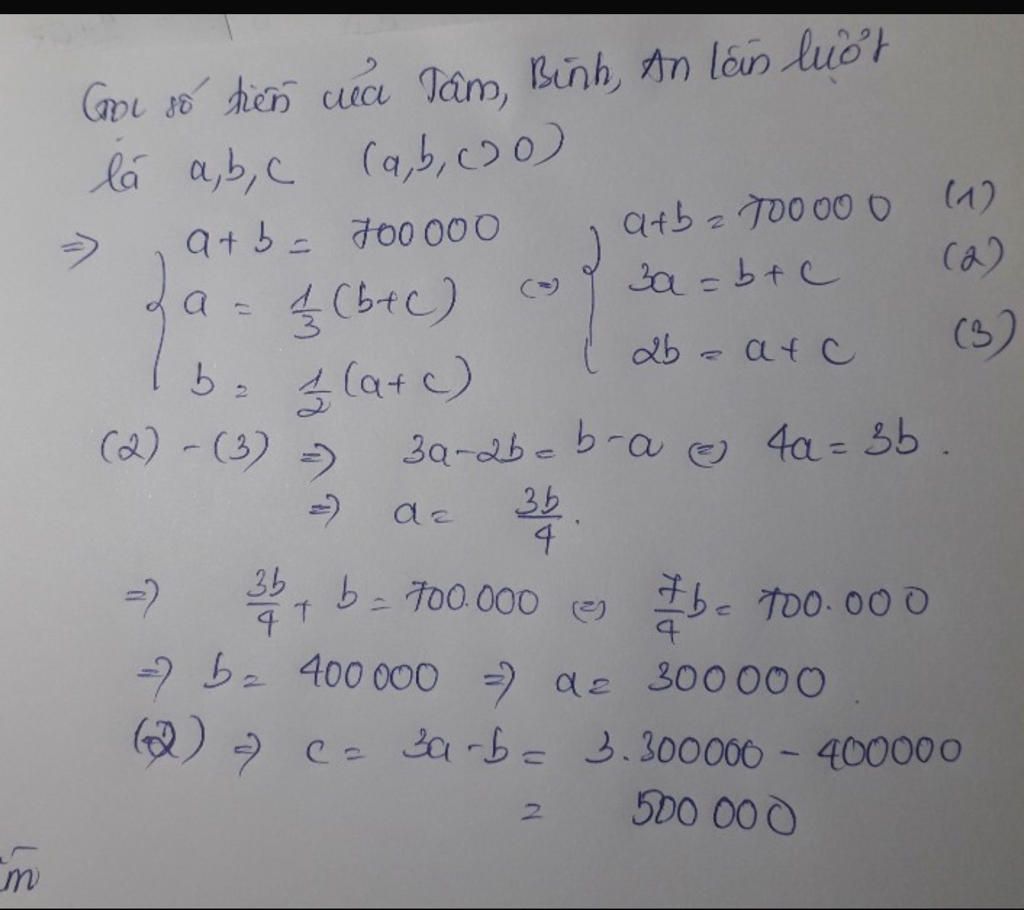 Gọi số tiền của Tâm, Bình, An lần lượt
là a,b,c (a,b,c>0)
=> { a+b = 700000 <=> { a+b = 700000 (1)
a = 1/3 (b+c) 3a = b+c (2)
b = 1/2 (a+c) 2b = a+c (3)
(2) - (3) => 3a-2b = b-a <=> 4a = 3b.
=> a = 3b/4.
=> 3b/4 + b = 700.000 <=> 7/4 b = 700.000
=> b = 400000 => a = 300000
(2) => c = 3a-b = 3.300000 - 400000
= 500000